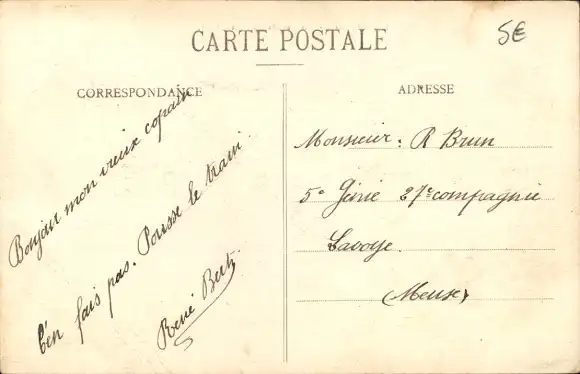 CARTE POSTALE
5€
CORRESPONDANCE
Bonjour mon vieux copain
t'en fais pas. Pousse le train
René
ADRESSE
Monsieur: R Brun
5e Génie 27e compagnie
Lavoye
(Meuse)